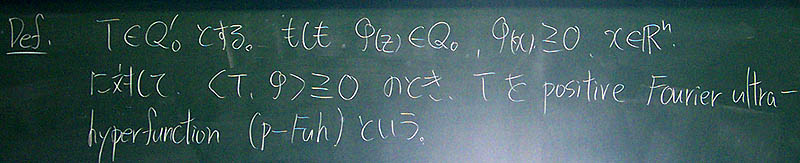 Def. T∈Q'₀ とする。もしも φ(z)∈Q₀, φ(x)≧0, x∈ℝⁿ.
に対して、<T, φ>≧0 のとき、Tを positive Fourier ultra-
hyperfunction (p-Fuh) という。